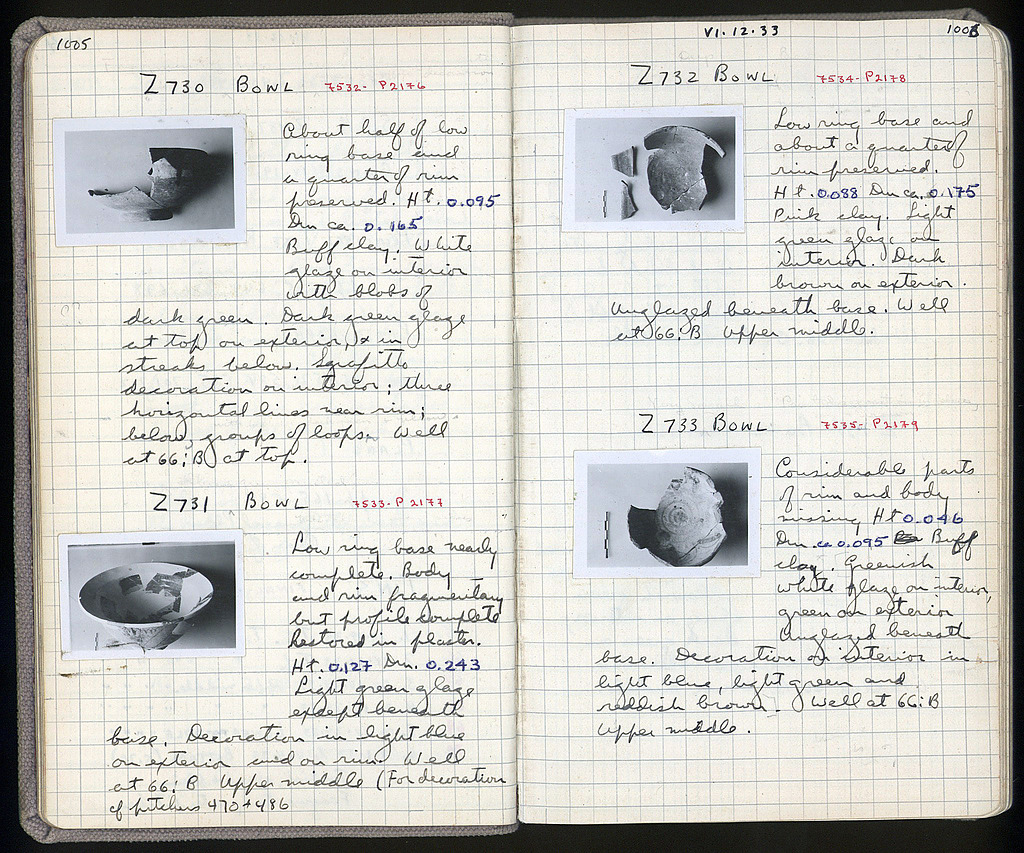 1005
Z 730 BOWL 7532- P2176
About half of low
ring base and
a quarter of rim
preserved. Ht. 0.095
Dm ca. 0.165
Buff clay. White
glaze on interior
with blobs of
dark green. Dark green glaze
at top on exterior, & in
streaks below. Sgrafitto
decoration on interior; three
horizontal lines near rim;
below, groups of loops. Well
at 66:B at top.
Z 731 BOWL 7533-P 2177
Low ring base nearly
complete. Body
and rim fragmentary
but profile complete
Restored in plaster.
Ht. 0.127 Dm. 0.243
Light green glaze
except beneath
base. Decoration in light blue
on exterior and on rim. Well
at 66: B Upper middle (For decoration
cf pitchers 470+486
VI.12.33
1006
Z 732 BOWL 7534-P2178
Low ring base and
about a quarter of
rim preserved.
Ht. 0.088 Dm ca. 0.175
Pink clay. Light
green glaze on
interior. Dark
brown on exterior.
Unglazed beneath base. Well
at 66:B Upper middle.
Z 733 BOWL 7535-P2179
Considerable parts
of rim and body
missing Ht 0.046
Dm. ca 0.095 Buff
clay. Greenish
white glaze on interior,
green on exterior
Unglazed beneath
base. Decoration on interior in
light blue, light green and
reddish brown. Well at 66:B
Upper middle.